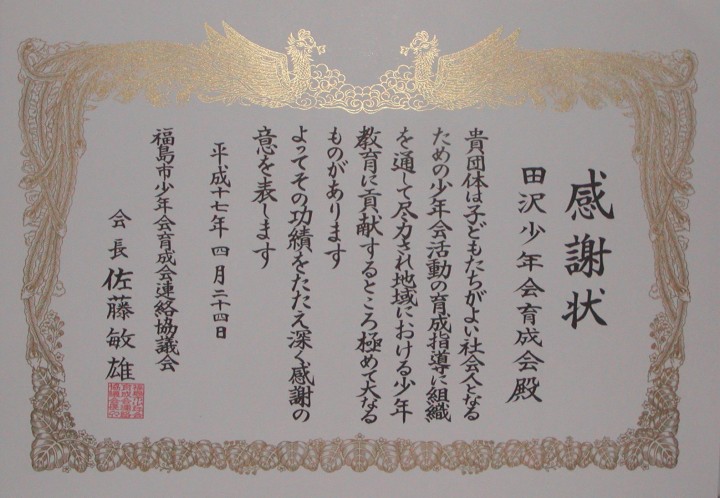 感謝状
田沢少年会育成会殿
貴団体は子どもたちがよい社会人となる
ための少年会活動の育成指導に組織
を通して尽力され地域における少年
教育に貢献するところ極めて大なる
ものがあります
よってその功績をたたえ深く感謝の
意を表します
平成十七年四月二十四日
福島市少年会育成会連絡協議会
会長 佐藤敏雄